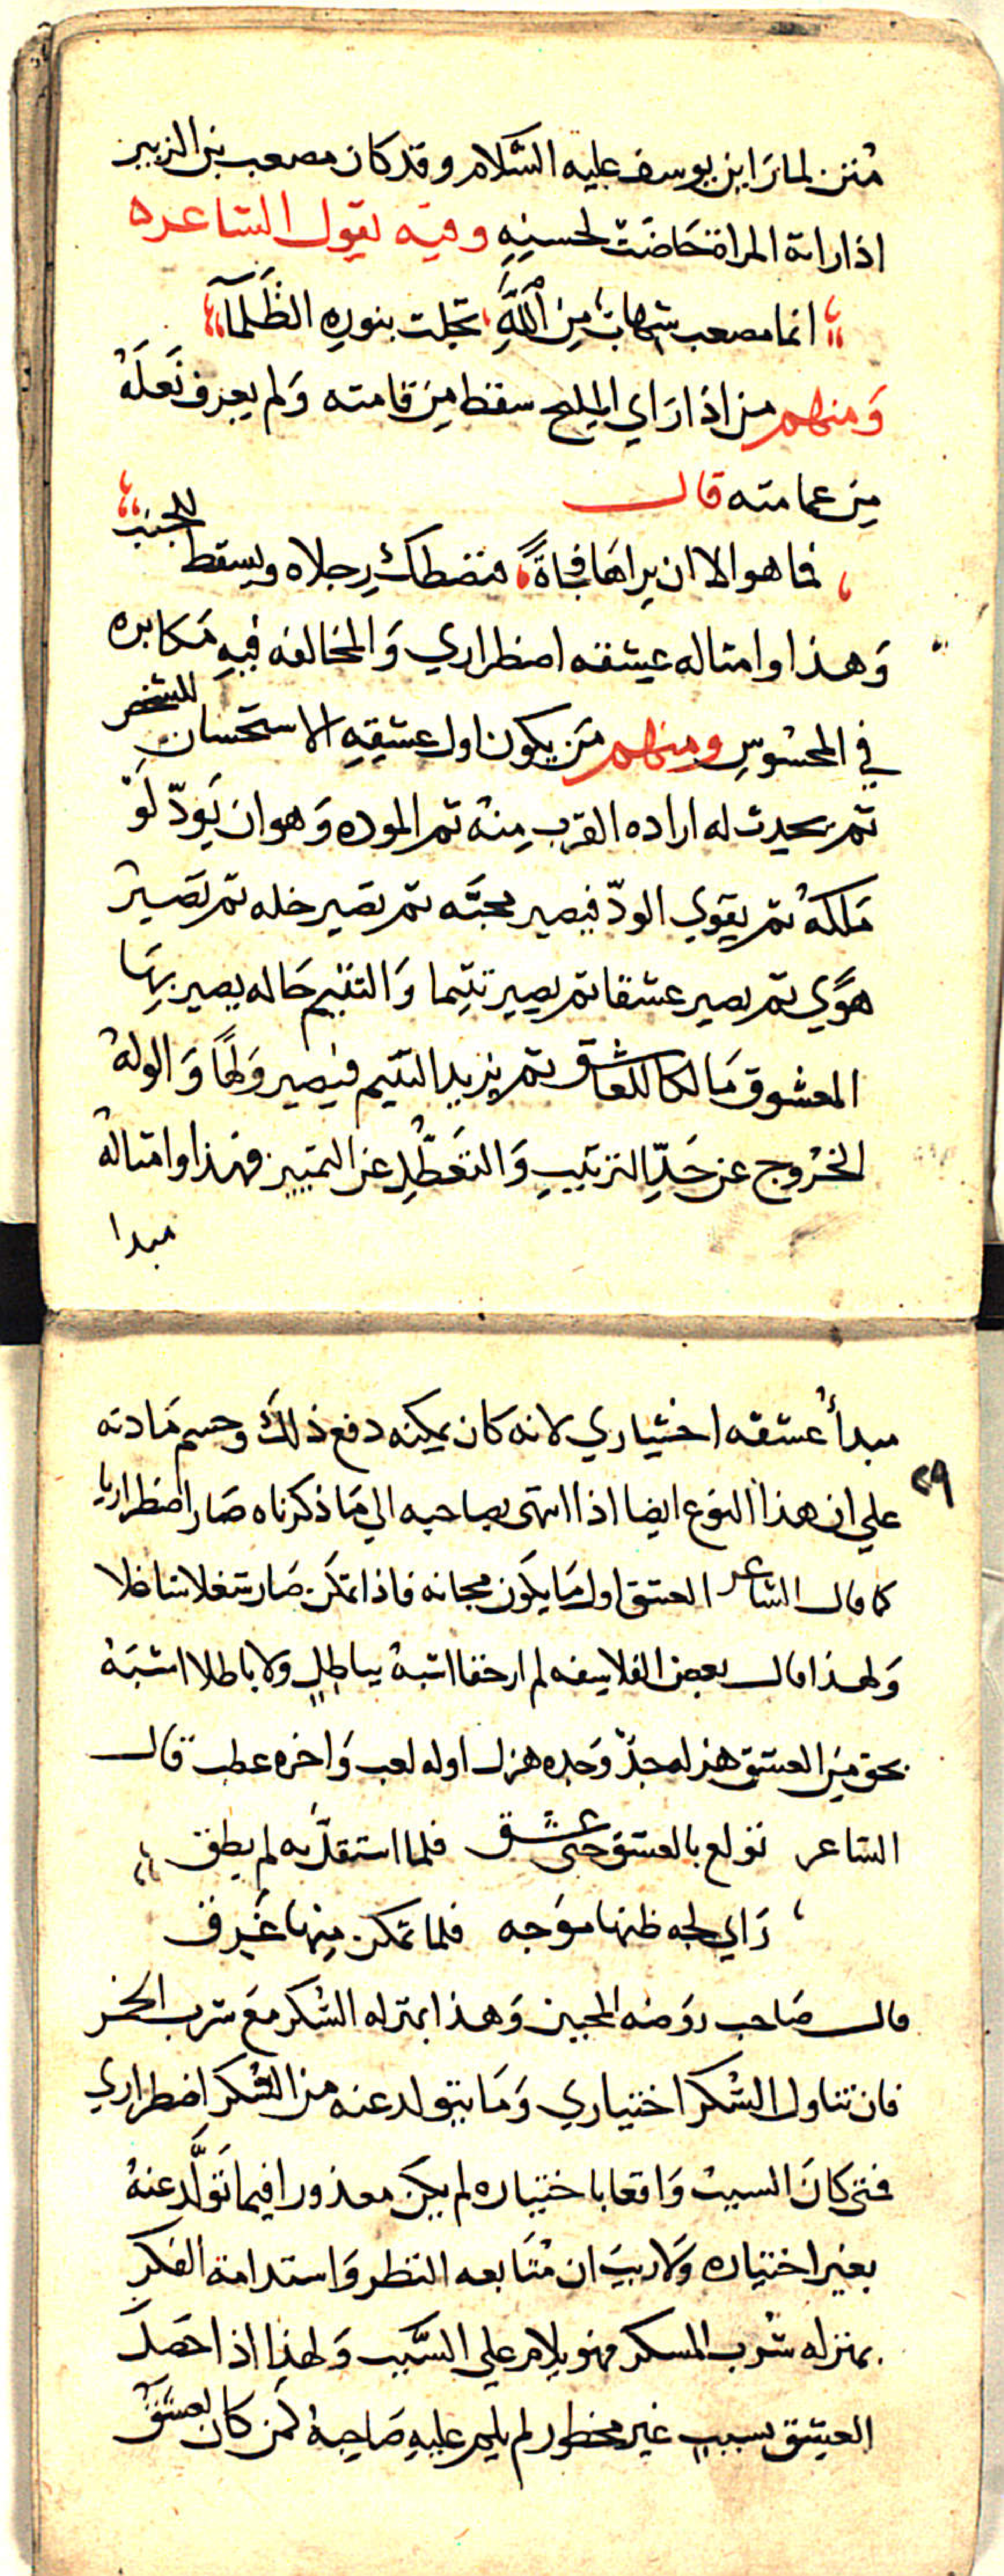 متن لما راين يوسف عليه السَّلام وقد كان مصعب بن الزبير
اذا راته المراة حَاضَت لحسنِهِ وفيه يقول الشاعر
انما مصعب شهابٌ مِنَ اللَّهِ تجلت بنورِهِ الظَلمآ
وَمنهم من اذا رَاي المليح سقط مِن قامته وَلم يعرف نَعلَهُ
مِن عمامته قال
فما هو الا ان يراهَا فجاةً فتصطك رِجلاه ويسقط للجنب
وَهذا وامثاله عشقه اضطراري وَالمخالفه فيهِ مَكابره
في المحسُوسِ ومنهم مَن يكون اول عشقِهِ الاستحسان للشخص
ثم يحدث له اراده القرب مِنهُ ثم الموده وَهو ان يَودّ لَوْ
مَلكهُ ثم يقوي الودّ فيصير محبَّه ثم تصَير خله ثم تصَير
هوًي ثم يصير عشقا ثم يصير تتيما وَالتتيم حَاله يصير بِهَا
المعشوق مَالكا للعاشق ثم يزيد التتيم فيصير وَلهًا وَالوله
الخرُوج عن حَدِّ الترتيبِ وَالتعَطُّلِ عن التمييز فهذا وامثالهُ
مبدا
مبدأُ عشقه اختياري لانه كان يمكنه دفع ذلكَ وحسم مَادته
٢٩
علي ان هذا النوع ايضا اذا انتهى بصاحبه الي مَا ذكرناه صَار اضطراريا
كما قال الشاعر العشق اول مَا يكَون مجانه فاذا تمكن صَار شغلا شاغلا
وَلهذا قال بعض الفلاسفه لم ار حقا اشبهُ بباطلٍ ولا باطلا اشبَهُ
بحق مِنَ العشق هزله جدّ وَجده هزل اوله لعب وَاخره عطب قال
الشاعر تولع بالعشق حتى عشق فلما استقلّ به لم يطق
رَاي لجه ظنها موَجه فلما تمكن مِنها غَرِق
قال صَاحب روَضه المحبين وَهذا بمنزله السُّكر مَع شرب الخمر
فان تناول السُّكر اختياري وَمَا يتولد عنه من السُّكر اضطراري
فمتى كانَ السببُ وَاقعا باختياره لم يكن معذورا فيما تَولَّد عنهُ
بغير اختياره وَلا ريبَ ان مُتَابعه النظر وَاستدامة الفكر
بمنزله شُرب المسكر فهو يلام علي السَّبب وَلهذا اذا حَصَل
العشق بسببٍ غير محظور لم يلم عليهِ صَاحبهُ كمن كان يعشق